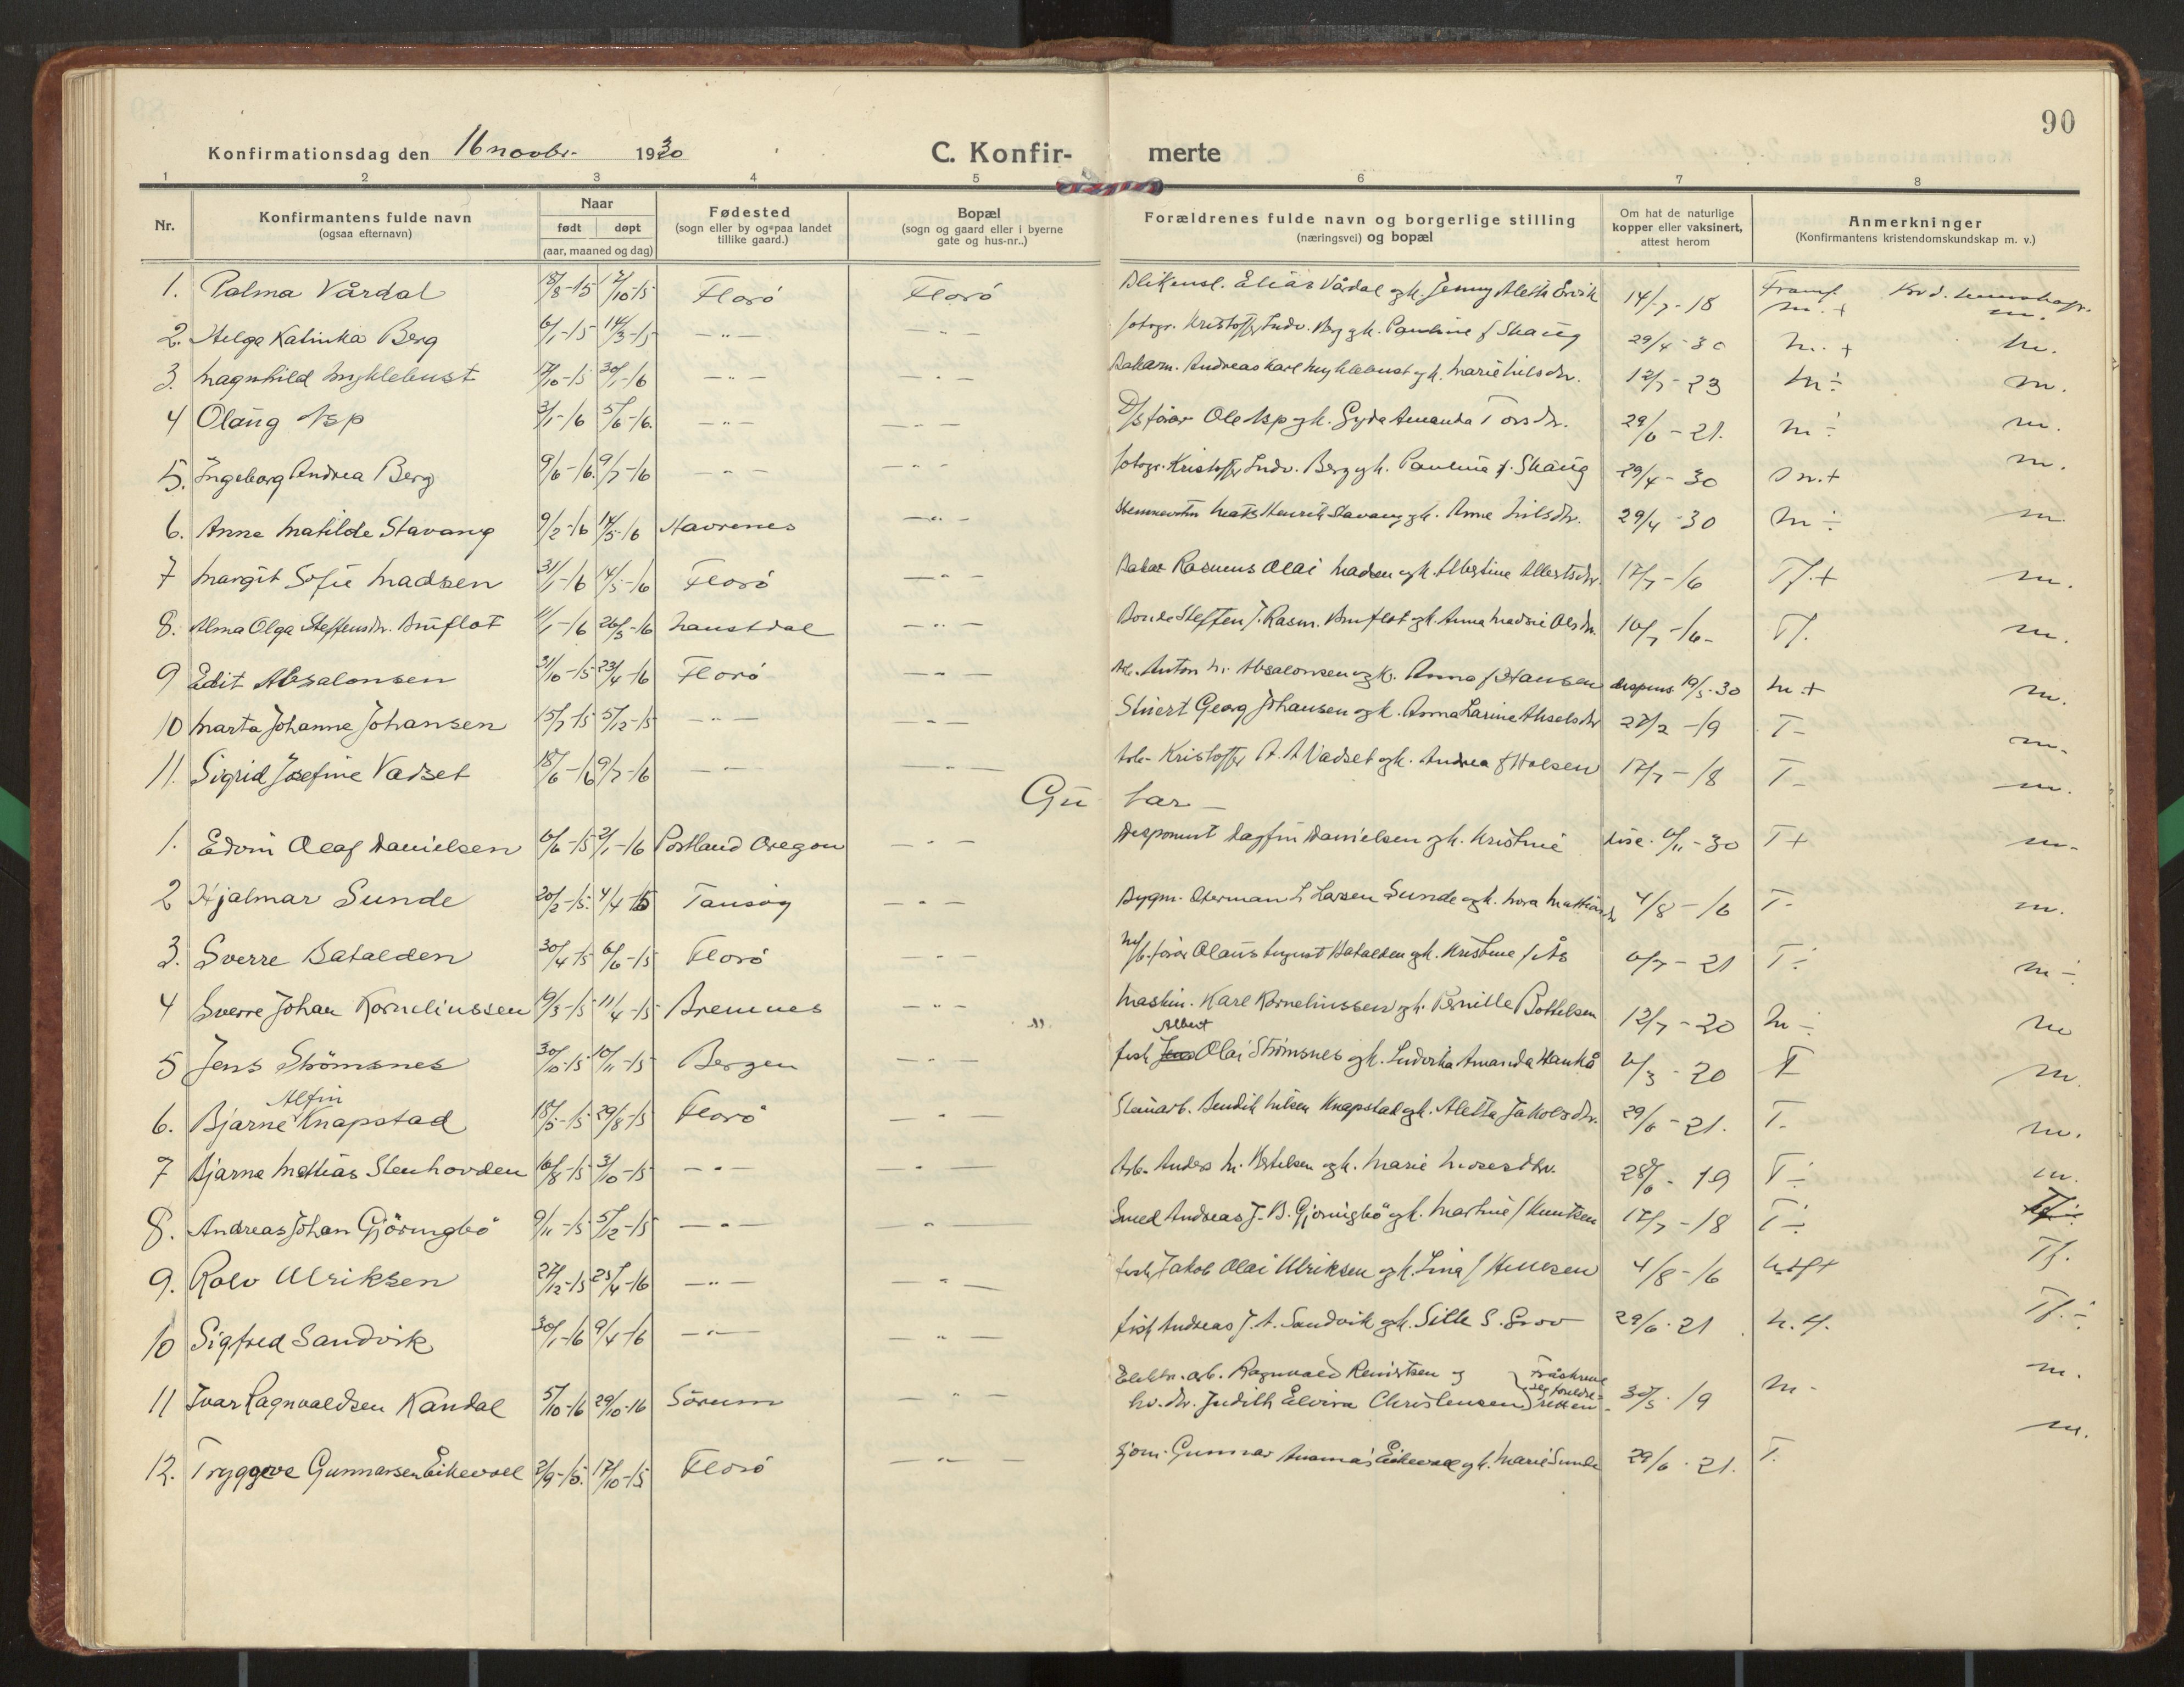 90
Konfirmationsdag den 16 novbr. 1930
C. Konfir- merte
1 2 3 4 5 6 7 8
Nr.
Konfirmantens fulde navn
(ogsaa efternavn)
Naar
født døpt
(aar, maaned og dag)
Fødested
(sogn eller by og paa landet
tillike gaard.)
Bopæl
(sogn og gaard eller i byerne
gate og hus-nr..)
Forældrenes fulde navn og borgerlige stilling
(næringsvei) og bopæl
Om hat de naturlige
kopper eller vaksinert,
attest herom
Anmerkninger
(Konfirmantens kristendomskundskap m. v.)
1. Palma Vårdal 18/8-15 7/10-15 Florö Florö Blikensl. Elias Vårdal og h. Jenny Aleth Ervik 14/7-18 m. + m.
2. Helga Katinka Berg 6/1-15 14/3-15 —"— —"— fotogr. Kristoffer Ludv. Berg og h. Pauline f Skaug 29/4-30 m. + m.
3. Magnhild Myklebust 17/10-15 30/1-16 —"— —"— Bakarm. Andreas Karl Myklebust og h. Marie Nilsdtr. 12/7-23 m ÷ m.
4 Olaug Asp 3/1-16 5/6-16. —"— —"— D/s förar Ole Asp og h. Gyda Amanda Torsdtr. 29/6-21. m ÷ m.
5. Ingeborg Andrea Berg 9/6-16. 9/7-16 —"— —"— fotogr. Kristoffer Ludv. Berg og h. Pauline f. Skaug 29/4-30 m.+ m.
6. Anne Matilde Stavang 9/2-16 14/5-16 Stavrenes —"— Mats Henrik Stavang og h. Anne Nilsdtr. 29/4-30 m ÷ m.
7 Margit Sofie Madsen 31/1-16 14/5-16 Florö —"— Bakar Rasmus Olai Madsen og h. Albertine Albertsdtr. 17/7-16 Tf.+ m.
8. Alma Olga Steffensdtr. Bruflot 11/1-16 26/3-16 Naustdal —"— Bonde Steffen J. Rasm. Bruflot og h. Anna Madsie Olsdtr. 10/7-16- Tf. m.
9 Edit Absalonsen 31/10-15 23/4-16 Florö —"— Anton M. Absalonsen og h. Anna f Hansen dispens. 19/5-30 m.+ m.
10 Marta Johanne Johansen 15/7-15 5/12-15 —"— —"— Stuert Georg Johansen og h. Anna Larine Akselsdtr 27/2-19 T- m-
11. Sigrid Josefine Vadset 18/6-16 9/7-16 —"— —"— Arb. Kristoffer A. A Vadset og h. Andrea f Holsen 17/7-18 T- m.
Gu tar —
1. Edvin Olaf Danielsen 6/6-15 2/1-16 Portland Oregon —"— Disponent Dagfin Danielsen og h. Kristine 6/11-30 T+ m-
2 Hjalmar Sunde 20/2-15. 4/4-15 Tansöy —"— Bygm. Herman L Larsen Sunde og h. Nora 4/8-16 T- m.
3. Sverre Batalden 30/4-15 6/6-15 Florö —"— M/b. förar Olaus August Batalden og h. Kristine f Ås 6/7-21 T÷ m÷
4 Sverre Johan Korneliussen 19/3-15 11/4-15 Bremnes —"— Maskin. Karl Korneliussen og h. Pernille Bottolsen 12/7-20 m÷ m
5 Jens Strömsnes 30/10-15 10/11-15 Bergen —"— fisk Jens Albert Olai Strömsnes og h. Ludvika Amanda Haukå 6/3-20 T m.
6. Bjarne Alfin Knapstad 18/5-15 29/8-15 Florö —"— Steinarb. Bendik Nilsen Knapstad og h. Aletta Jakobsdtr. 29/6-21. T. m.
7 Bjarne Mathias Stenhovden 16/8-15 3/10-15 —"— —"— Arb. Anders M. Bertelsen og h. Marie Mosesdtr. 28/6-19 T÷ m.
8. Andreas Johan Gjöringbö 9/11-15 5/12-15 —"— " Smed Andreas J. B. Gjöringbö og h. Martine f Knutsen 17/7-18 T÷ Tf÷
9. Rolv Ulriksen 27/12-15 25/4-16 —"— —"— fisk Jakob Olai Ulriksen og h. Lina f Hennesen 4/8-16 Tf.
10 Sigfred Sandvik 30/1-16 9/4-16 —"— —"— fisk Andreas J. A. Sandvik og h. Sille S. Grov 29/6-21 Tf.÷
11 Ivar Ragnvaldsen Kandal 5/10-16 29/10-16 Sörum —"— Elektr. arb. Ragnvald Reinertsen og
hv. dtr. Judith Elvira Christensen Fråskreve seg foreldreretten 30/5-19 m- m.
12. Tryggve Gunnarsen Eikevoll 2/9-15. 17/10-15 Florö —"— Gunnar Eikevoll og h. Marie Sunde 29/6-21. T. m.